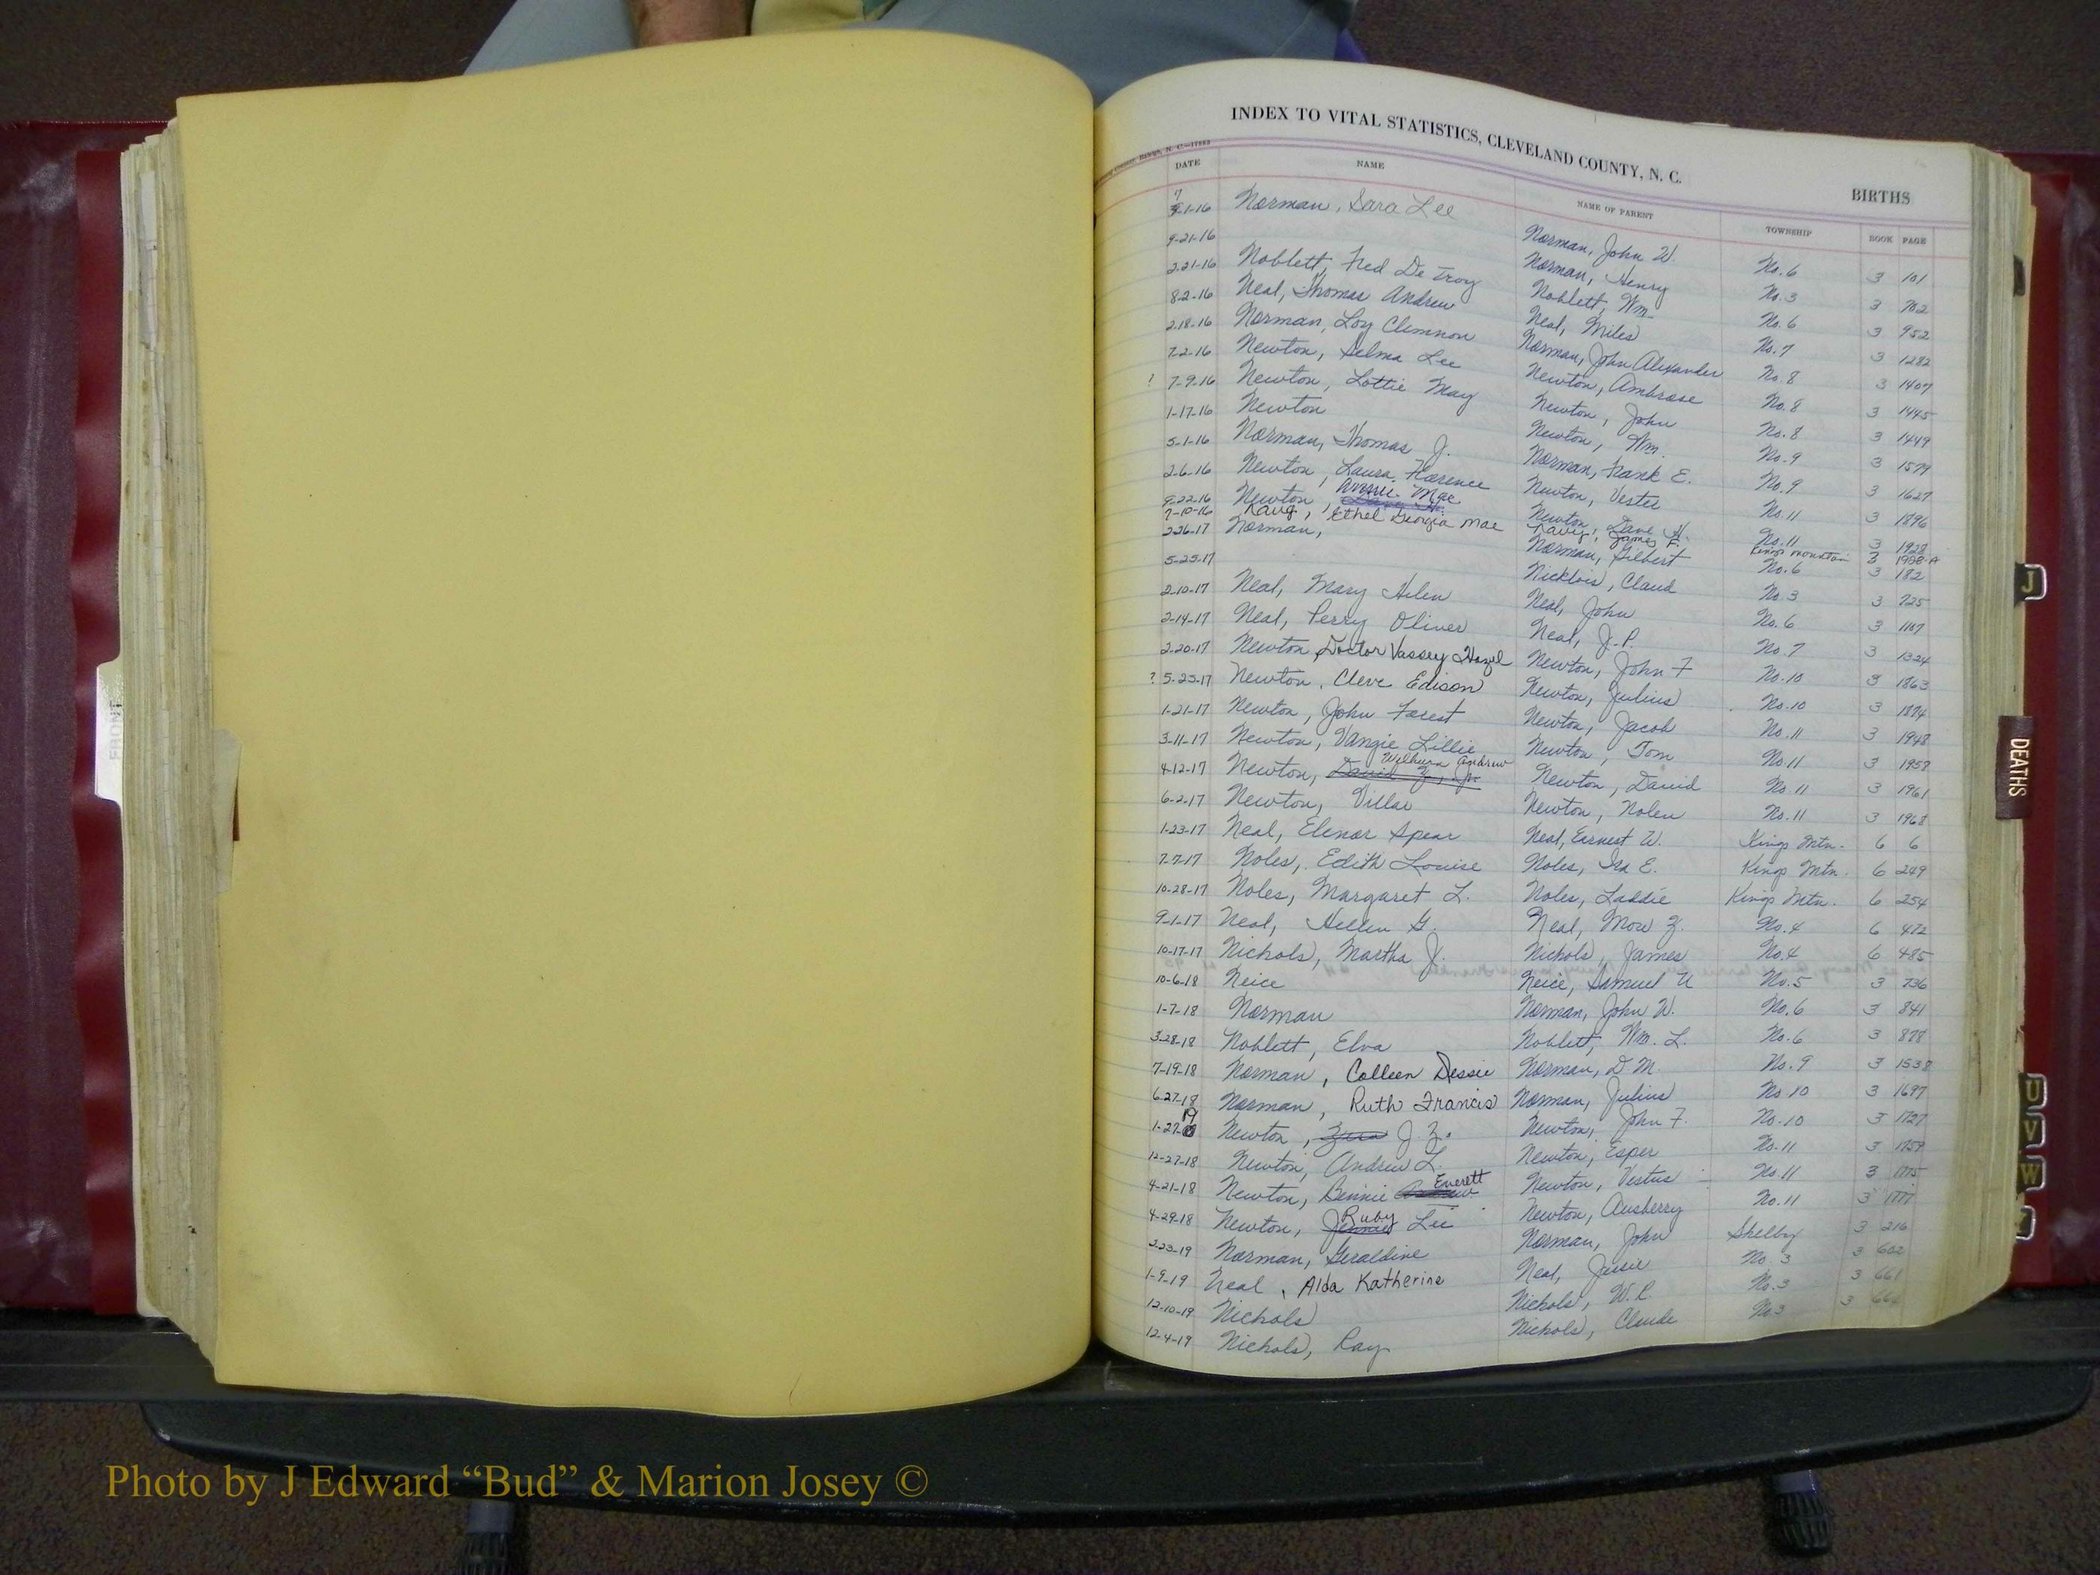 INDEX TO VITAL STATISTICS, CLEVELAND COUNTY, N. C.
BIRTHS
DATE NAME NAME OF PARENT TOWNSHIP BOOK PAGE
7-1-16 Norman, Sara Lee Norman, John W. No. 6 3 101
9-21-16 Norman, Henry No. 3 3 702
2-21-16 Noblett, Fred De Troy Noblett, Wm. No. 6 3 952
8-2-16 Neal, Thomas Andrew Neal, Miles No. 7 3 1282
2-18-16 Norman, Loy Clemnon Norman, John Alexander No. 8 3 1407
7-2-16 Newton, Selma Lee Newton, Ambrose No. 8 3 1445
! 7-9-16 Newton, Lottie May Newton, John No. 8 3 1449
1-17-16 Newton Newton, Wm. No. 9 3 1579
5-1-16 Norman, Thomas J. Norman, Frank E. No. 9 3 1627
2-6-16 Newton, Laura Florence Newton, Vestee No. 11 3 1896
9-22-16 Newton, Annie Mae Newton, Dave H. No. 11 3 1928
7-10-16 Ethel Georgia Mae James F. Kings Mountain 3 1928-A
2-26-17 Norman, Norman, Gilbert No. 6 3 182
5-25-17 Nicklois, Claud No. 3 3 725
2-10-17 Neal, Mary Helen Neal, John No. 6 3 1107
2-14-17 Neal, Perry Oliver Neal, J. P. No. 7 3 1324
2-20-17 Newton, Doctor Vassey Hazel Newton, John F No. 10 3 1863
? 5-25-17 Newton, Cleve Edison Newton, Julius No. 10 3 1874
1-21-17 Newton, John Forest Newton, Jacob No. 11 3 1948
3-11-17 Newton, Vangie Lillie Newton, Tom No. 11 3 1958
4-12-17 Newton, David Z., Jr. Wilburn Andrew Newton, David No 11 3 1961
6-2-17 Newton, Villar Newton, Nolen No. 11 3 1968
1-23-17 Neal, Elenor Spear Neal, Earnest W. Kings Mtn. 6 6
7-7-17 Noles, Edith Louise Noles, Ira E. Kings Mtn. 6 249
10-28-17 Noles, Margaret L. Noles, Laddie Kings Mtn. 6 254
9-1-17 Neal, Hellen G. Neal, Mow Z. No. 4 6 472
10-17-17 Nichols, Martha J. Nichols, James No. 4 6 485
10-6-18 Neice Neice, Samuel U No. 5 3 736
1-7-18 Norman Norman, John W. No. 6 3 841
3-28-18 Noblett, Elva Noblett, Wm. L. No. 6 3 878
7-19-18 Norman, Colleen Dessie Norman, D. M. No. 9 3 1538
6-27-18 Norman, Ruth Francis Norman, Julius No 10 3 1697
1-27-19 Newton, J. Z. Newton, John F. No. 10 3 1727
12-27-18 Newton, Andrew L. Newton, Esper No. 11 3 1759
4-21-18 Newton, Bennie Everett Newton, Vestus No. 11 3 1775
4-29-18 Newton, Jennie Ruby Lee Newton, Ausberry No. 11 3 1777
2-23-19 Norman, Geraldine Norman, John Shelby 3 216
1-9-19 Neal, Alda Katherine Neal, Jessie No. 3 3 602
12-10-19 Nichols Nichols, W. P. No. 3 3 661
12-4-19 Nichols, Ray Nichols, Claude No 3 3
FRONT
J
DEATHS
U
V
W
Photo by J Edward “Bud” & Marion Josey ©